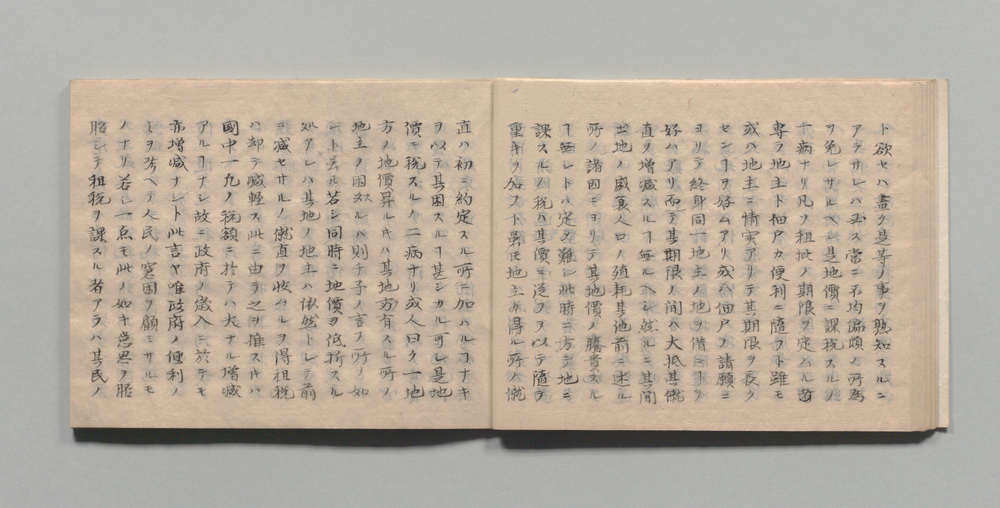 ト欲セハ盡ク是等ノ事ヲ熟知スルニ
アラサレハ必ス常ニ不均偏頗ノ所為
ヲ免レサルヘシ是地價ニ課税スルノ
一病ナリ凡ソ租税ノ期限ヲ定ムル
専ラ地主ト佃戸カ便利ニ隨フト雖モ
或ハ地主ニ情実アリテ其期限ヲ長ク
センヿヲ好ムアリ或ハ佃戸ノ請願ニ
ヨリテ終身同一地主ノ地ヲ借ニヿヲ
好ハアリ而テ其期限ノ間ハ大抵其僦
直ヲ増減スルヿ無ルヘシ然ルニ其間
土地ノ盛衰人口ノ殖耗其他前ニ述ル
所ノ諸因ニヨリテ其地價ノ騰貴スル
ヿ無シトハ定メ難シ此時ニ方テ地ニ
課スルノ税ハ其價ニ従フヲ以テ随テ
重キヲ加フト雖モ地主カ得ル所ノ僦
直ハ初ニ約定スル所ニ加ハルヿナキ
ヲ以テ其困スルヿ甚シカルヘシ是地
價ニ税スルノ二病ナリ或人曰ク一地
方ノ地價昇ルキハ其地方有スル所ノ
地主ノ困スルハ則チ子ノ言フ所ノ如
シト雖若シ同時ニ地價ヲ低
処アレハ其地ノ地主ハ依然トシテ前
ニ減セサルノ僦直ヲ收ムルヲ得租税
ハ却テ減軽ス此ニ由テ之ヲ推スキハ
國中一九ノ税額ニ於テハ大ナル増減
アルヿナシ故ニ政府ノ歳入ニ於テモ
亦増減ナシト此言ヤ唯政府ノ便利ノ
ミヲ考ヘテ人民ノ窮困ヲ顧ミサルモ
ノナリ若シ一点モ此ノ如キ意思ヲ
シテ租税ヲ課スル者アラハ其民ノ